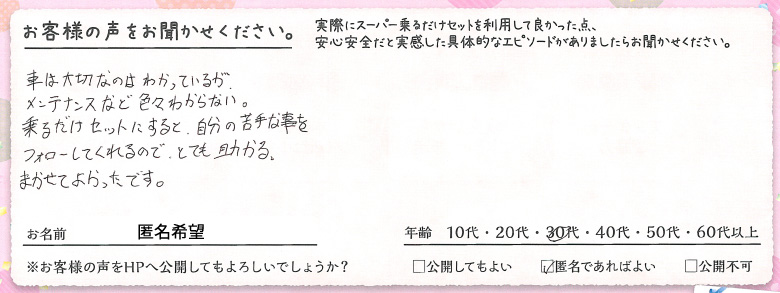 お客様の声をお聞かせください。
実際にスーパー乗るだけセットを利用して良かった点、
安心安全だと実感した具体的なエピソードがありましたらお聞かせください。
車は大切なのはわかっているが、
メンテナンスなど色々わからない。
乗るだけセットにすると、自分の苦手な事を
フォローしてくれるので、とても助かる。
まかせてよかったです。
お名前 匿名希望
年齢 10代・20代・30代・40代・50代・60代以上
※お客様の声をHPへ公開してもよろしいでしょうか？ □公開してもよい ☑匿名であればよい □公開不可